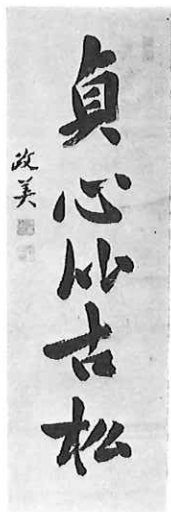 貞心似古松
政美